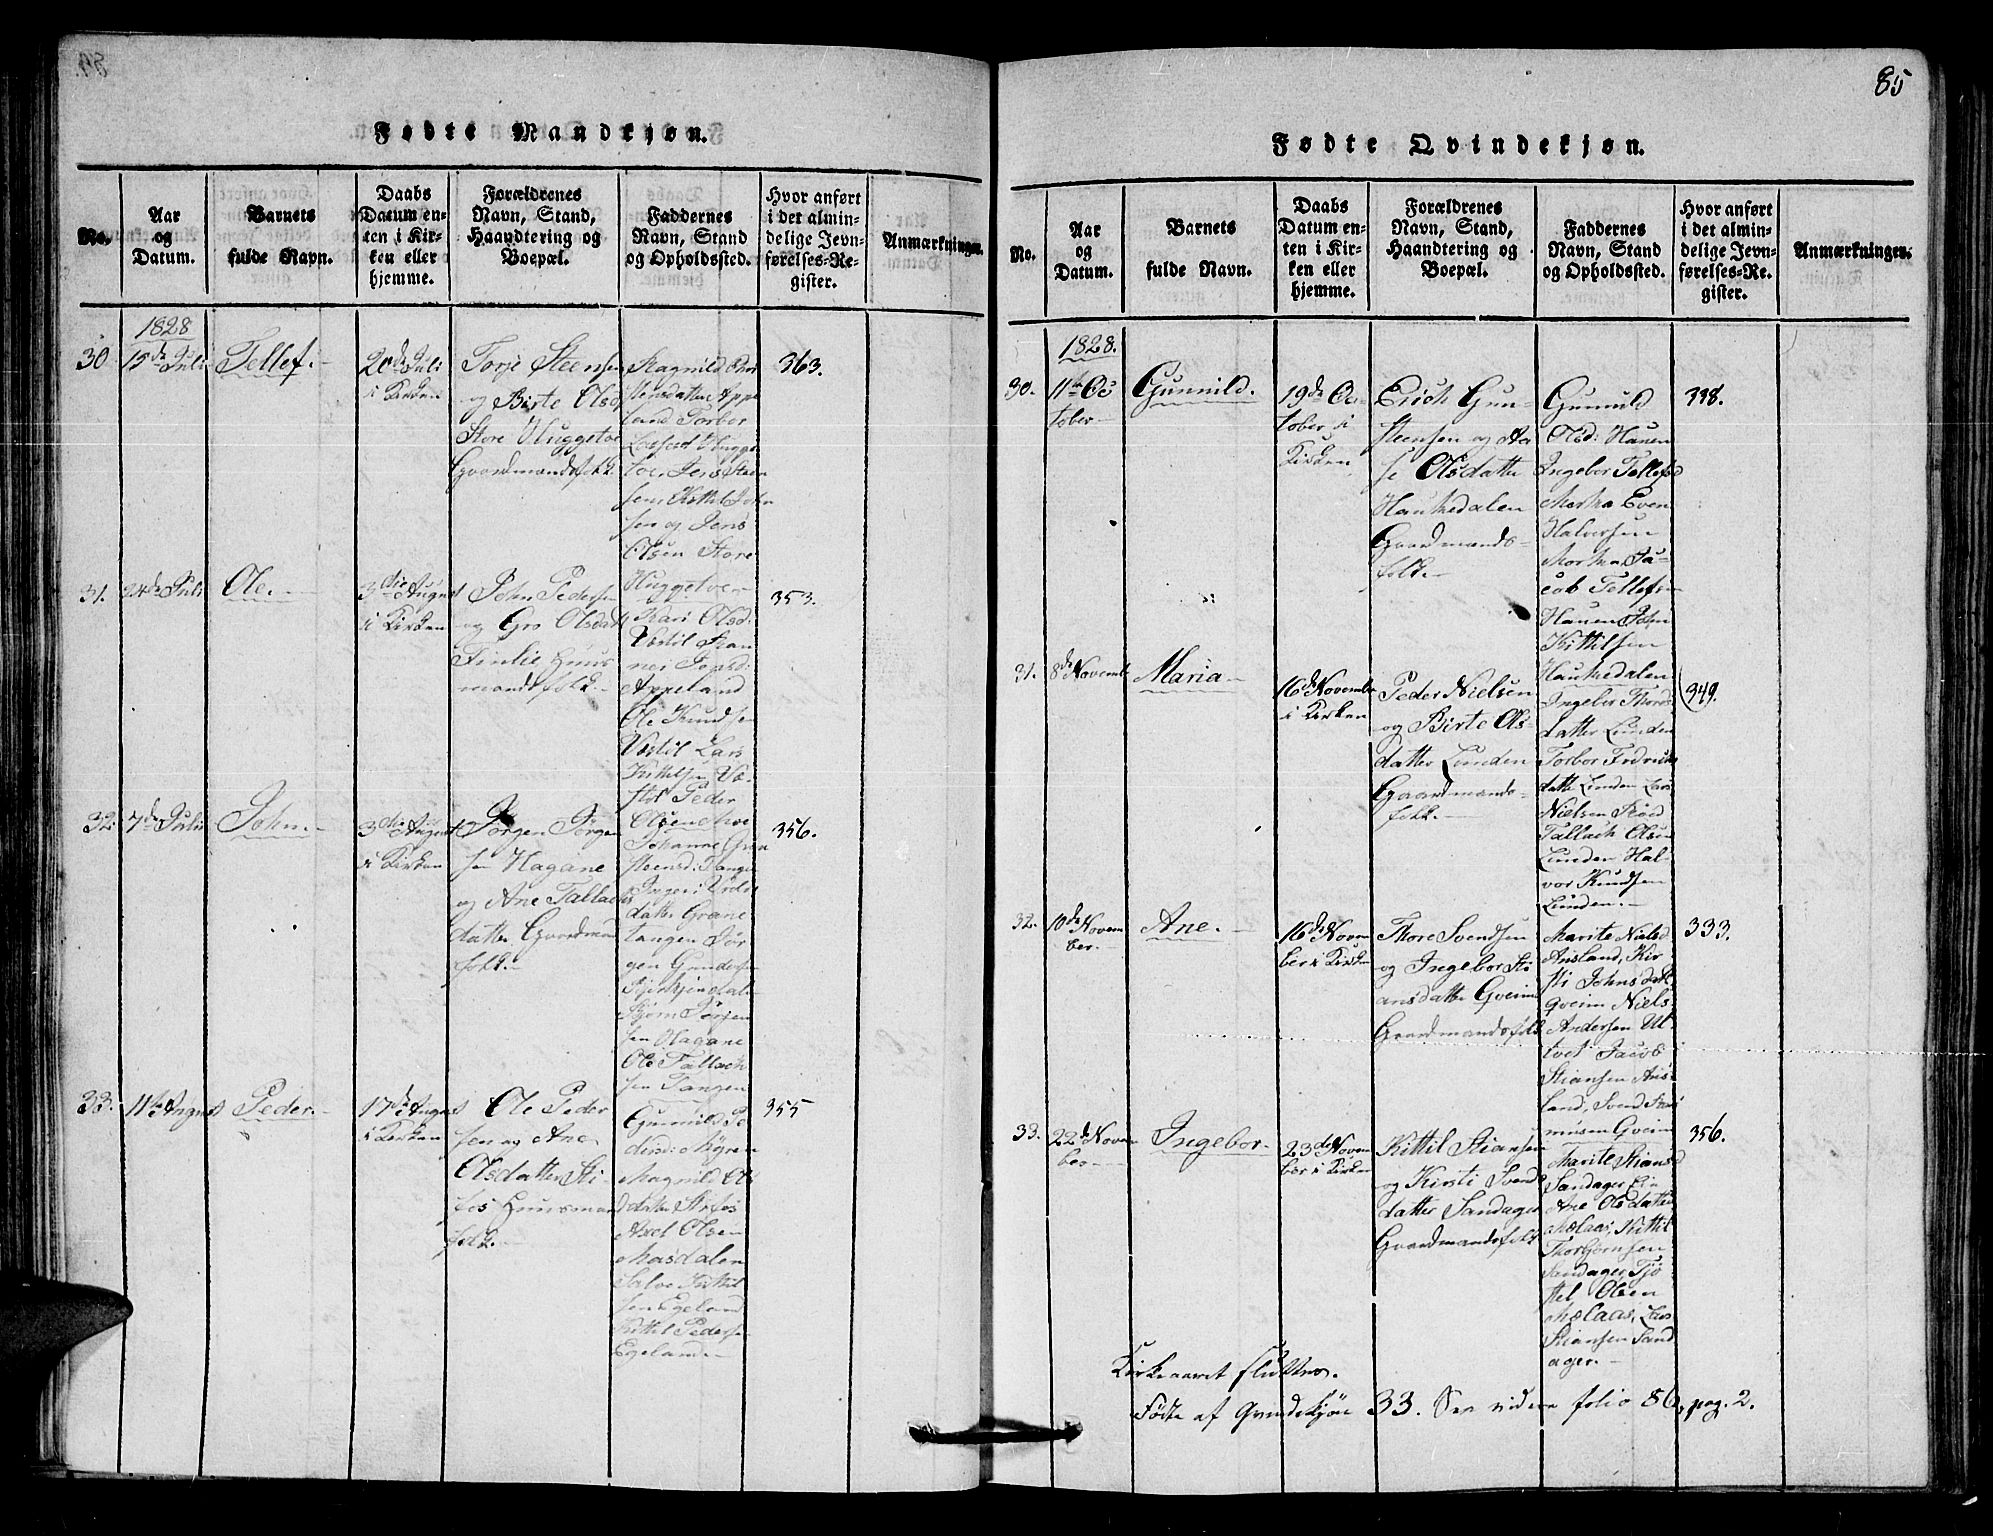 Fødte Mandkjøn.
No.
Aar
og
Datum.
Barnets
fulde Navn.
Daabs
Datum en-
ten i Kir-
ken eller
hjemme.
Forældrenes
Navn, Stand,
Haandtering og
Boepæl.
Faddernes
Navn, Stand
og Opholdssted.
Hvor anført
i det almin-
delige Jevn-
førelses-Re-
gister.
Anmærkninger.
1828
30
15de Juli
Tellef.
20de Juli
i Kirken
Torje Steensen
og Birte Olsd
Store Huggetve
Gaardmandsfolk.
Ragnild
Appe
land Torbor
Hugge
toe, Jens Steen
sen, Kittil John
sen og Jens
Olsen Store
Huggetve
363.
31.
24de Juli
Ole.
3die August
i Kirken
John Pedersen
og Gro Olsdatt
Finlie Huus
mandsfolk.
Kari Olsd:
Vestøl
Appeland
Ole Knudsen
Vestøl Lars
Kittilsen Ve-
støl Peder
Olsen
353.
32.
7de Juli
John.
3die August
i Kirken
Jørgen Jørgen
sen Hagane
og Ane Tallachs
datter Gaardman
folk.
Johanne
steensd: Tangen
Inger
datter Grane
tangen Jør
gen Gundersen
Bjørn Jørgen
sen Hagane
Ole Tallach
sen Tangen
356.
33.
11te August
Peder.
17de August
i Kirken
Ole Peder
sen og Ane
Olsdatter Sti-
fos Huusmand
folk.
Gunnild Pe
dersd: Myren
Magnild Ols
datter Stifos
Axel Olsen
Masdalen
Salve Kittil
sen Egeland
Kittil Peders
Egeland.
355
85
Fødte Qvindekjøn.
No.
Aar
og
Datum.
Barnets
fulde Navn.
Daabs
Datum en-
ten i Kir-
ken eller
hjemme.
Forældrenes
Navn, Stand,
Haandtering og
Boepæl.
Faddernes
Navn, Stand
og Opholdssted.
Hvor anført
i det almin-
delige Jevn-
førelses-Re-
gister.
Anmærkninger.
1828.
30.
11te Oc
tober
Gunnild.
19de Oc-
tober i
Kirken
Erich Gun-
steensen og Aa
se Olsdatte
Haukedalen
Gaardmands-
folk.
Gunnild
Olsd: Hauen
Ingebor Tellefsd
Morka Even
Halversen
Morka, Ja-
cob Tellefs-
Hauen John
Kittilsen
Haukedalen
338.
31.
8de Novemb
Maria
16de November
i Kirken
Peder Nielsen
og Birte Ols-
datter Lunden
Gaardmands-
folk.
Ingebor Thores
datter Lunden
Torbor Fredrichs
datte Lunden Lars
Nielsen
Tallach Olsen
Lunden Hal-
vor Knudsen
Lunden.
349.
32.
10de Novem
ber.
Ane.
16de Novem
ber i Kirken
Thore Svendsen
og Ingebor Sti
ansdatte Gveim
Gaardmandsfolk
Marite Nielsd
Ausland, Kir
sti Johnsdatt
Gveim Niels
Andersen Ul-
tvet Jacob
Stiansen Aus-
land, Svend
Gveim
333.
33.
22de Novem
ber
Ingebor
23de Novem
ber i Kirken
Kittil Stiansen
og Kirsti Svend
datter Sandager
Gaardmandsfolk
Marite Stiansd
Sandager
Ane Olsdatter
Mælaas, Kittil
Thorbjørnsen
Sandager, Tjø-
stel Olsen
Mælaas, Lars
Stiansen Sand
ager.
356.
Kirkeaaret sluttes.
Fødte af Qvindekjøn 33. See videre folio 86, pag. 2.